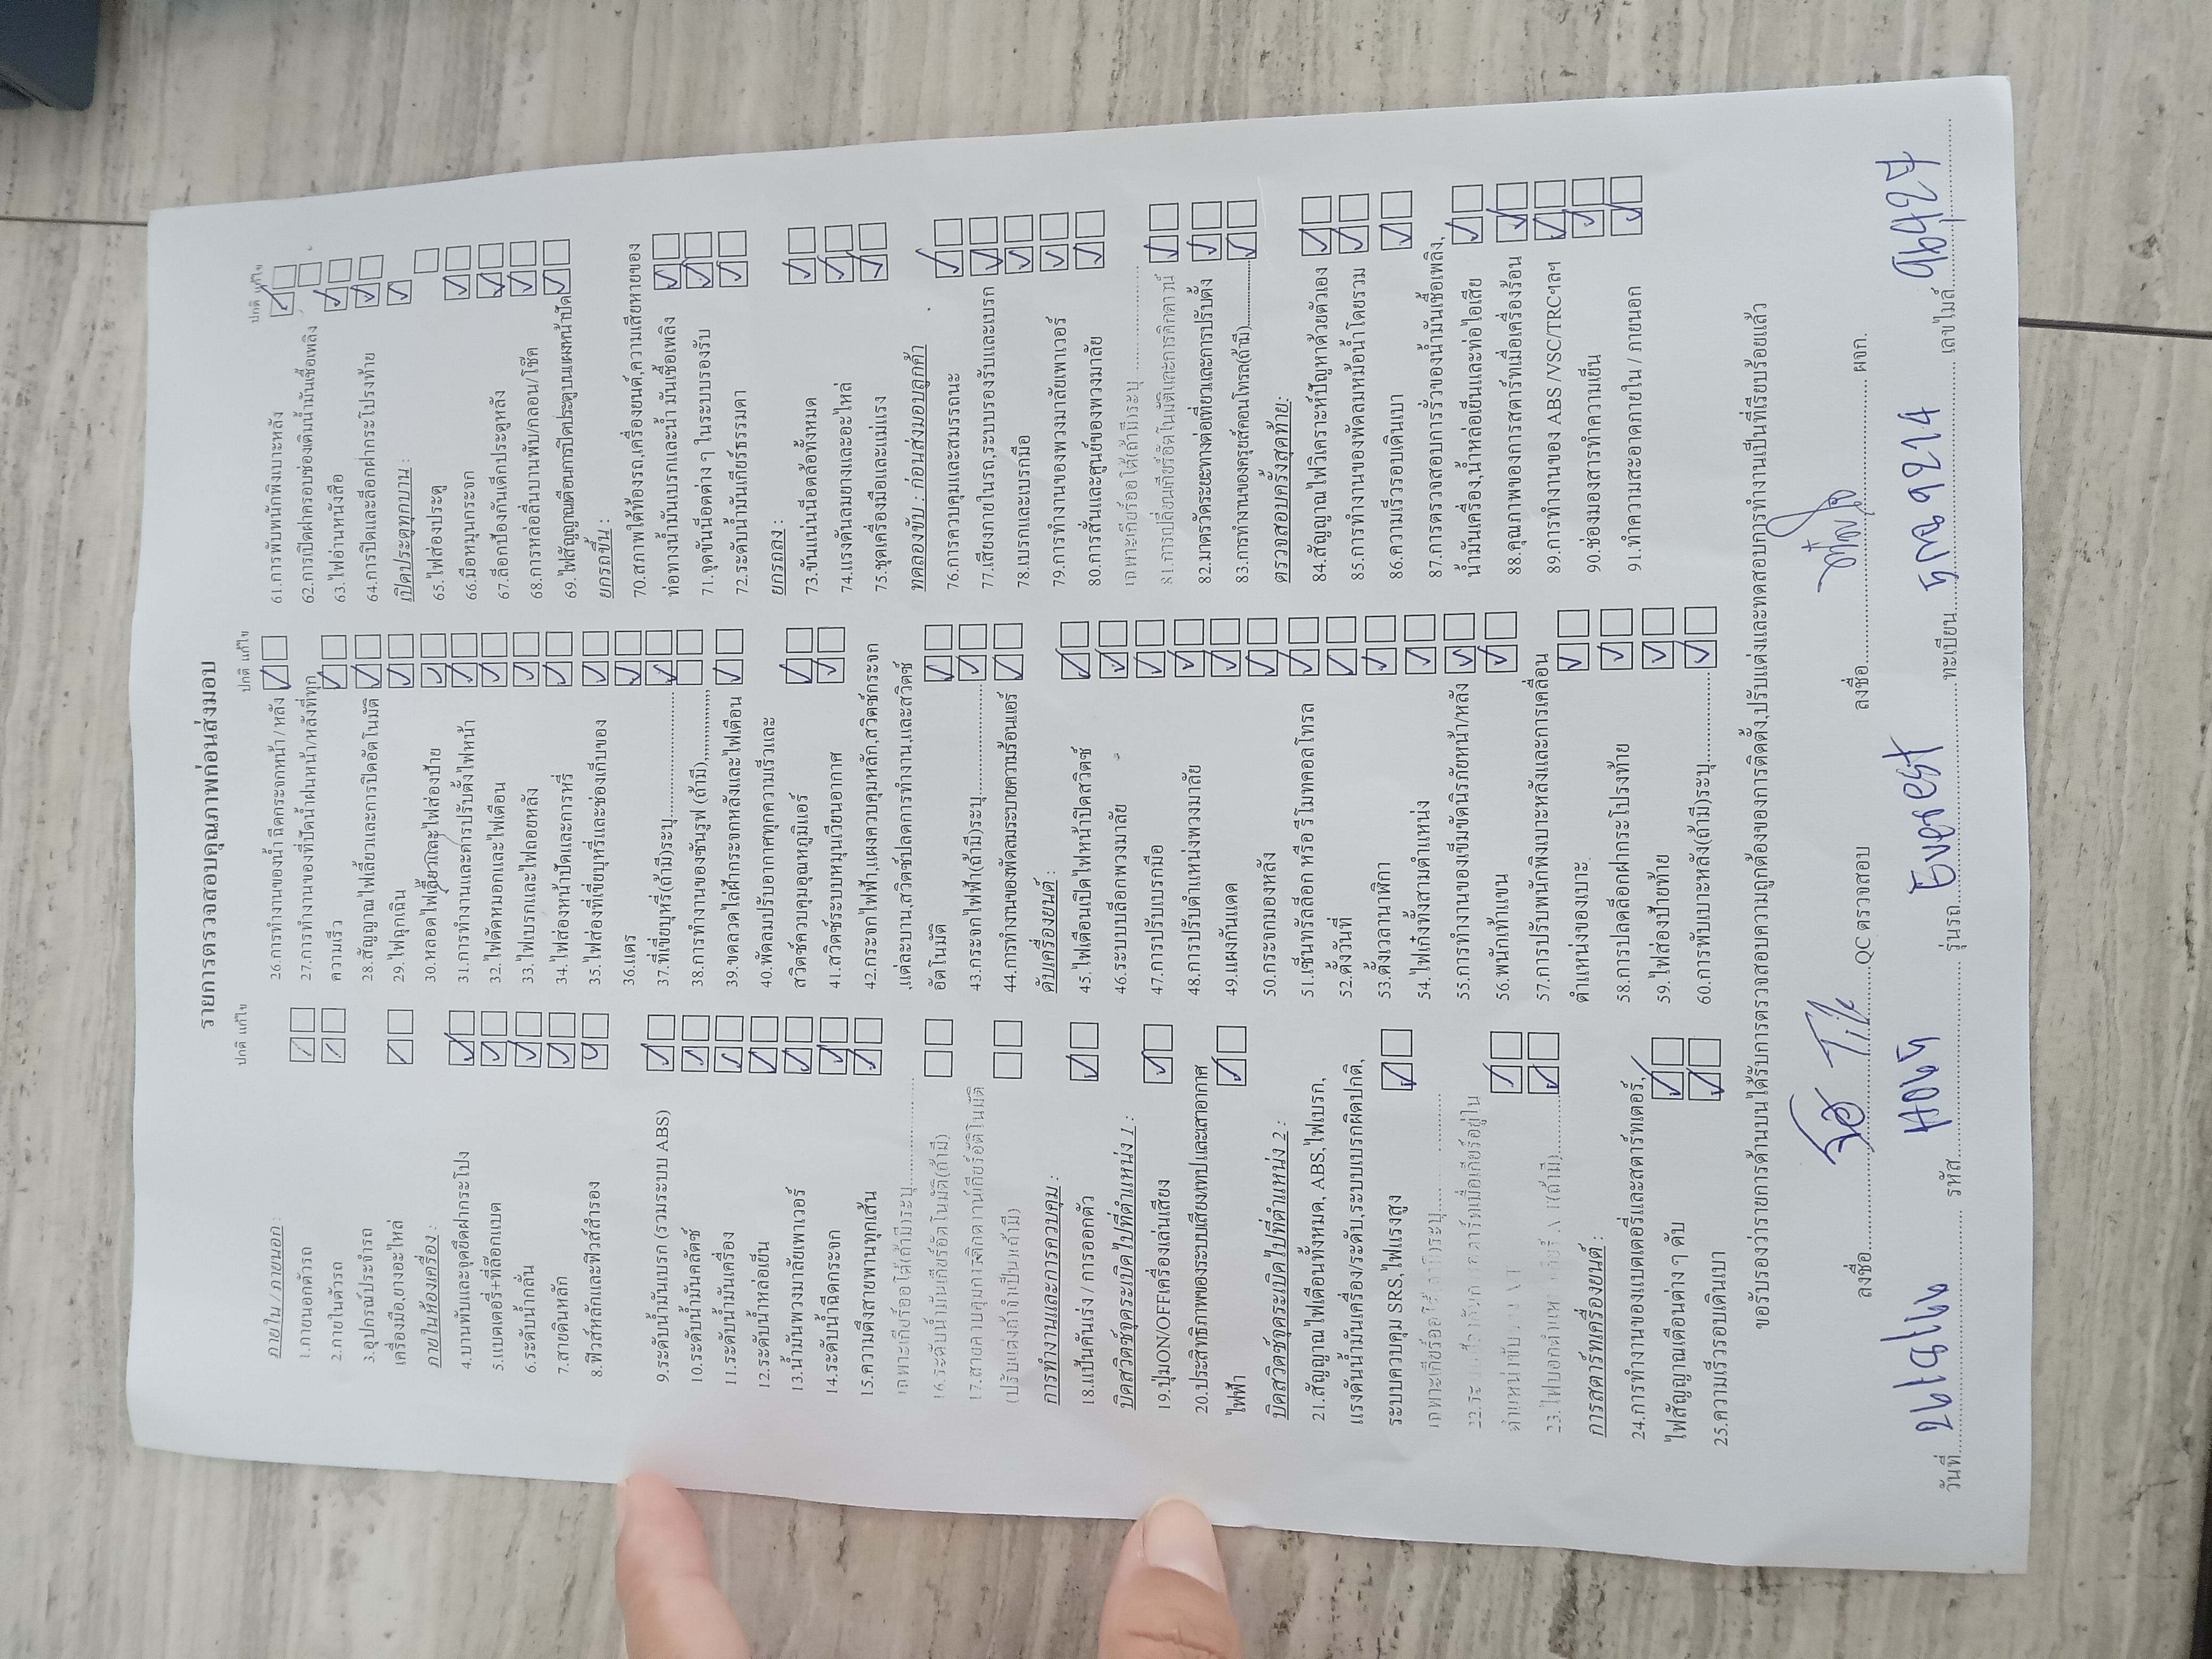 รายการตรวจสอบคุณภาพก่อนส่งมอบ
ปกติ แก้ไข
ภายใน / ภายนอก :
1.ภายนอกตัวรถ
2.ภายในตัวรถ
3.อุปกรณ์ประจำรถ
เครื่องมือ,ยางอะไหล่
ภายในห้องเครื่อง :
4.บานพับและจุดยึดฝากระโปง
5.แบตเตอรี่+ที่ล๊อกแบต
6.ระดับน้ำกลั่น
7.สายดินหลัก
8.ฟิวส์หลักและฟิวส์สำรอง
9.ระดับน้ำมันเบรก (รวมระบบ ABS)
10.ระดับน้ำมันคลัตช์
11.ระดับน้ำมันเครื่อง
12.ระดับน้ำหล่อเย็น
13.น้ำมันพวงมาลัยเพาเวอร์
14.ระดับน้ำฉีดกระจก
15.ความตึงสายพานทุกเส้น
เฉพาะเกียร์ออโต้(ถ้ามี)ระบุ....................
16.ระดับน้ำมันเกียร์อัตโนมัติ(ถ้ามี)
17.สายควบคุมการคิกดาวน์เกียร์อัติโนมัติ
(ปรับแต่งถ้าจำเป็น)(ถ้ามี)
การทำงานและการควบคุม :
18.แป้นคันเร่ง / การออกตัว
บิคสวิตช์จุดระเบิดไปที่ตำแหน่ง 1 :
19.ปุ่มON/OFFเครื่องเล่นเสียง
20.ประสิทธิภาพของระบบเสียง/เทปและเสาอากาศ
ไฟฟ้า
บิดสวิตช์จุดระเบิดไปที่ตำแหน่ง 2 :
21.สัญญาณไฟเตือนทั้งหมด, ABS,ไฟเบรก,
แรงดันน้ำมันเครื่อง/ระดับ,ระบบเบรกผิดปกติ,
ระบบควบคุม SRS,ไฟแรงสูง
การสตาร์ทเครื่องยนต์ :
24.การทำงานของแบตเตอรี่และสตาร์ทเตอร์,
ไฟสัญญาณเตือนต่าง ๆ ดับ
25.ความเร็วรอบเดินเบา
ปกติ แก้ไข
26.การทำงานของน้ำ ฉีดกระจกหน้า / หลัง
27.การทำงานของที่ปัดน้ำฝนหน้า/หลังที่ทุก
ความเร็ว
28.สัญญาณไฟเลี้ยวและการปิดอัตโนมัติ
29.ไฟฉุกเฉิน
30.หลอดไฟเลี้ยวและไฟส่องป้าย
31.การทำงานและการปรับตั้งไฟหน้า
32.ไฟตัดหมอกและไฟเตือน
33.ไฟเบรกและไฟถอยหลัง
34.ไฟส่องหน้าปัดและการหรี่
35.ไฟส่องที่เขี่ยบุหรี่และช่องเก็บของ
36.แตร
37.ที่เขี่ยบุหรี่(ถ้ามี)ระบุ....................
38.การทำงานของซันรูฟ (ถ้ามี),,,,,,,,,,,,
39.ขดลวดไล่ฝ้ากระจกหลังและไฟเตือน
40.พัดลมปรับอากาศทุกความเร็วและ
สวิตช์ควบคุมอุณหภูมิแอร์
41.สวิตช์ระบบหมุนเวียนอากาศ
42.กระจกไฟฟ้า,แผงควบคุมหลัก,สวิตช์กระจก
,แต่ละบาน,สวิตช์ปลดการทำงาน,และสวิตช์
อัตโนมัติ
43.กระจกไฟฟ้า(ถ้ามี)ระบุ....................
44.การทำงานของพัดลมระบายความร้อนแอร์
ดับเครื่องยนต์ :
45.ไฟเตือนเปิดไฟหน้าปิดสวิตช์
46.ระบบบล็อกพวงมาลัย
47.การปรับเบรกมือ
48.การปรับตำแหน่งพวงมาลัย
49.แผงกันแดด
50.กระจกมองหลัง
51.เซ็นทรัลล็อก หรือ รีโมทคอลโทรล
52.ตั้งวันที่
53.ตั้งเวลานาฬิกา
54.ไฟเก๋งทั้งสามตำแหน่ง
55.การทำงานของเข็มขัดนิรภัยหน้า/หลัง
56.พนักเท้าแขน
57.การปรับพนักพิงเบาะหลังและการเคลื่อน
ตำแหน่งของเบาะ
58.การปลดล็อกฝากระโปรงท้าย
59.ไฟส่องป้ายท้าย
60.การพับเบาะหลัง(ถ้ามี)ระบุ....................
ปกติ แก้ไข
61.การพับพนักพิงเบาะหลัง
62.การเปิดฝาครอบช่องเติมน้ำมันเชื้อเพลิง
63.ไฟอ่านหนังสือ
64.การปิดและล็อกฝากระโปรงท้าย
เปิดประตูทุกบาน :
65.ไฟส่องประตู
66.มือหมุนกระจก
67.ล็อกป้องกันเด็กประตูหลัง
68.การหล่อลื่นบานพับ/กลอน/โช๊ค
69.ไฟสัญญาณเตือนการปิดประตูบนแผงหน้าปัด
ยกรถขึ้น :
70.สภาพใต้ท้องรถ,เครื่องยนต์,ความเสียหายของ
ท่อทางน้ำมันเบรกและน้ำ มันเชื้อเพลิง
71.จุดขันน็อตต่าง ๆ ในระบบรองรับ
72.ระดับน้ำมันเกียร์ธรรมดา
ยกรถลง :
73.ขันแน่นน็อตล้อทั้งหมด
74.แรงดันลมยางและอะไหล่
75.ชุดเครื่องมือและแม่แรง
ทดลองขับ : ก่อนส่งมอบลูกค้า
76.การควบคุมและสมรรถนะ
77.เสียงภายในรถ,ระบบรองรับและเบรก
78.เบรกและเบรกมือ
79.การทำงานของพวงมาลัยเพาเวอร์
80.การสั่นและศูนย์ของพวงมาลัย
เฉพาะเกียร์ออโต้(ถ้ามี)ระบุ ....................
81.การเปลี่ยนเกียร์อัตโนมัติและการคิกดาวน์
82.มาตรวัดระยะทางต่อเที่ยวและการปรับตั้ง
83.การทำงานของครุยส์คอนโทรล(ถ้ามี)....................
ตรวจสอบครั้งสุดท้าย:
84.สัญญาณไฟวิเคราะห์ปัญหาด้วยตัวเอง
85.การทำงานของพัดลมหม้อน้ำโดยรวม
86.ความเร็วรอบเดินเบา
87.การตรวจสอบการรั่วของน้ำมันเชื้อเพลิง,
น้ำมันเครื่อง,น้ำหล่อเย็นและท่อไอเสีย
88.คุณภาพของการสตาร์ทเมื่อเครื่องร้อน
89.การทำงานของ ABS /VSC/TRCฯลฯ
90.ช่องมองสารทำความเย็น
91.ทำความสะอาดภายใน / ภายนอก
ขอรับรองว่ารายการด้านบนได้รับการตรวจสอบความถูกต้องของการติดตั้ง,ปรับแต่งและทดสอบการทำงานเป็นที่เรียบร้อยแล้ว
ลงชื่อ....................QC ตรวจสอบ ลงชื่อ.................... ผจก.
วันที่ รหัส รุ่นรถ Everest ทะเบียน เลขไมล์